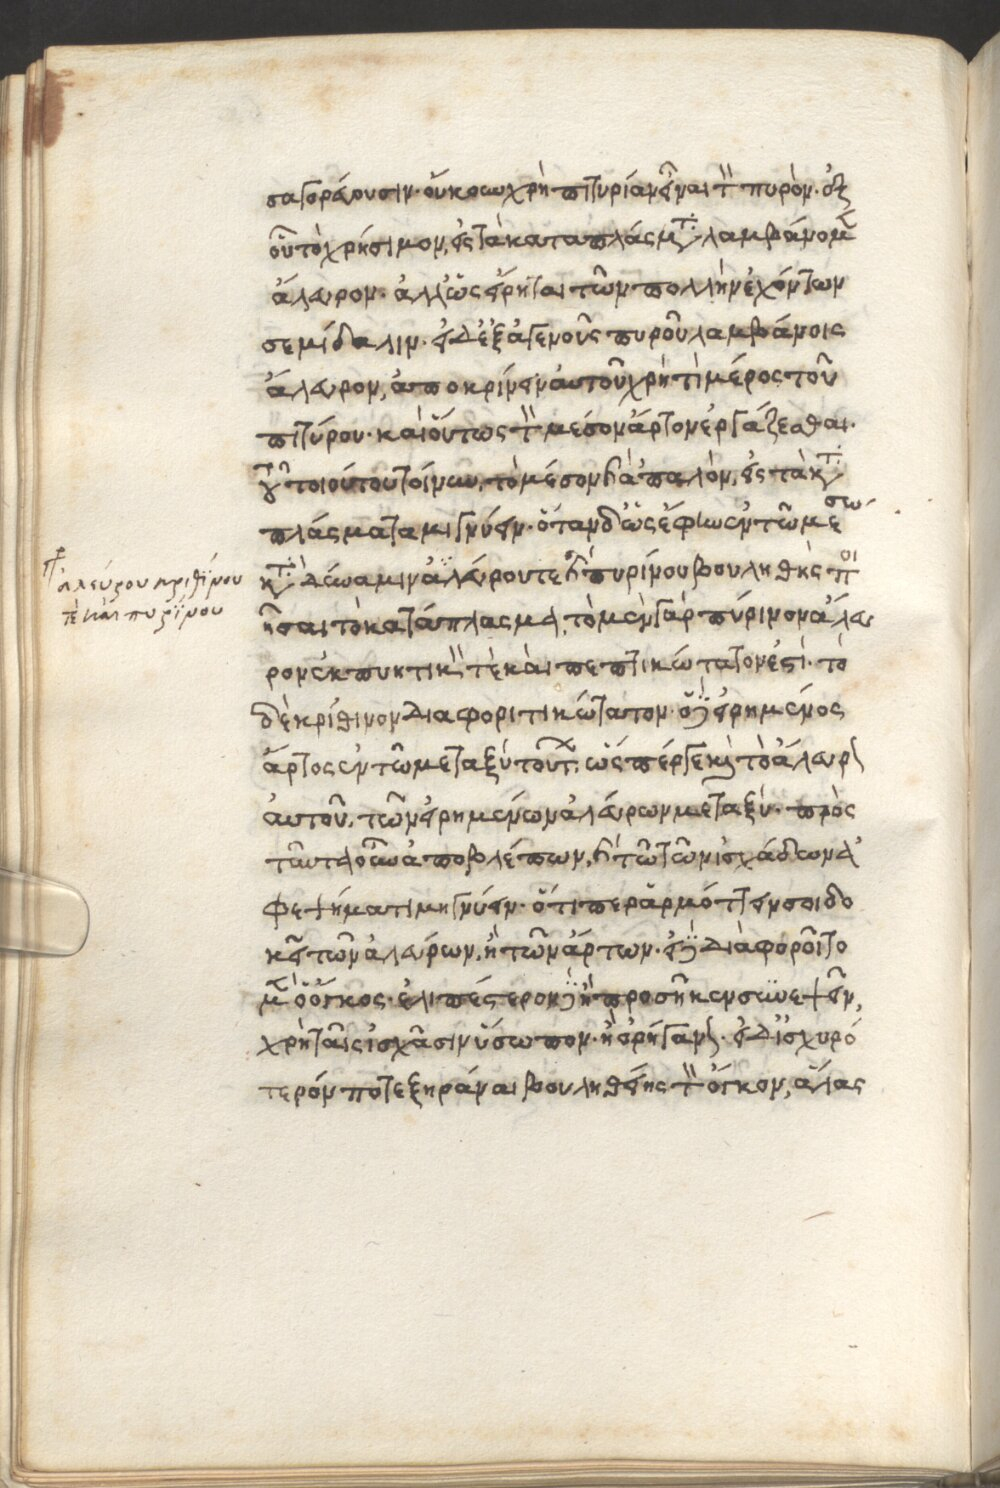 σαγορεύουσιν. οὔκουν χρὴ πιτυρίαν εἶναι τὸν πυρὸν. ἐξ
οὗ τὸ χρήσιμον, εἰς τὰ καταπλάσματα λαμβάνομεν
ἄλευρον. ἀλλ' ὡς εἴρηται τῶν πολλὴν ἐχόντων
σεμίδαλιν. εἰ δ' ἐξ ἀγενοῦς πυροῦ λαμβάνοις
ἄλευρον, ἀποκρίνειν αὐτοῦ χρή τι μέρος τοῦ
πιτύρου. καὶ οὕτως τὸν μέσον ἄρτον ἐργάζεσθαι.
τοῦ τοιούτου τοίνυν, τὸ μέσον καὶ ἁπαλὸν, εἰς τὰ κατα
πλάσματα μιγνύειν. ὅταν δ' ὡς ἔφην ἐν τῷ μέσω
κατὰ δύναμιν ἀλεύρου τε καὶ πυρίνου βουληθῇς ποι
ῆσαι τὸ κατάπλασμα, τὸ μὲν γὰρ πύρινον ἄλευ
ρον ἐκπυκτικόν τὲ καὶ πεπτικώτατον ἐστί. τὸ
δὲ κρίθινον διαφοριτικώτατον. ὁ δὲ εἰρημένος
ἄρτος ἐν τῷ μεταξὺ τούτων, ὥσπέρ γε καὶ τὸ ἄλευρον
αὐτοῦ, τῶν εἰρημένων ἀλεύρων μεταξύ. πρὸς
ταῦτα οὖν ἀποβλέπων, καὶ τῷ τῶν ἰσχάδων ἀ
φεψήματι μιγνύειν. ὅτι περ ἁρμόττειν σοι δο
κεῖ τῶν ἀλεύρων, ἢ τῶν ἄρτων. εἰ δὲ διάφοροιτο
μὲν ὁ ὄγκος. ἐλιπέστερον δὲ ἢ προσῆκεν συνεψεῖν,
χρὴ ταῖς ἰσχᾶσιν ὕσωπον. ἢ ὀρήγανον. εἰ δ' ἰσχυρό
τερόν ποτε ξηράναι βουληθείης τὸν ὄγκον, ἅλας
ἀλεύρου κριθίνου
τὲ καὶ πυρίνου